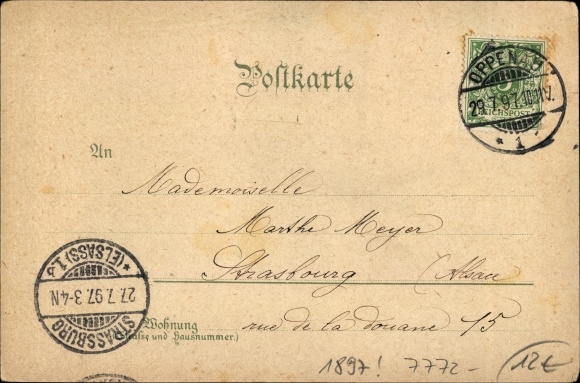 Postkarte
OPPENAU
29.7.97.10-11V.
REICHSPOST
* 1
An
Mademoiselle
Marthe Meyer
Strasbourg (Alsace
rue de la douane 15
Wohnung
(Straße und Hausnummer.)
*(ELSASS) 1.
27.7.97. 3-4N
STRASSBURG
1897! 7772-
12€